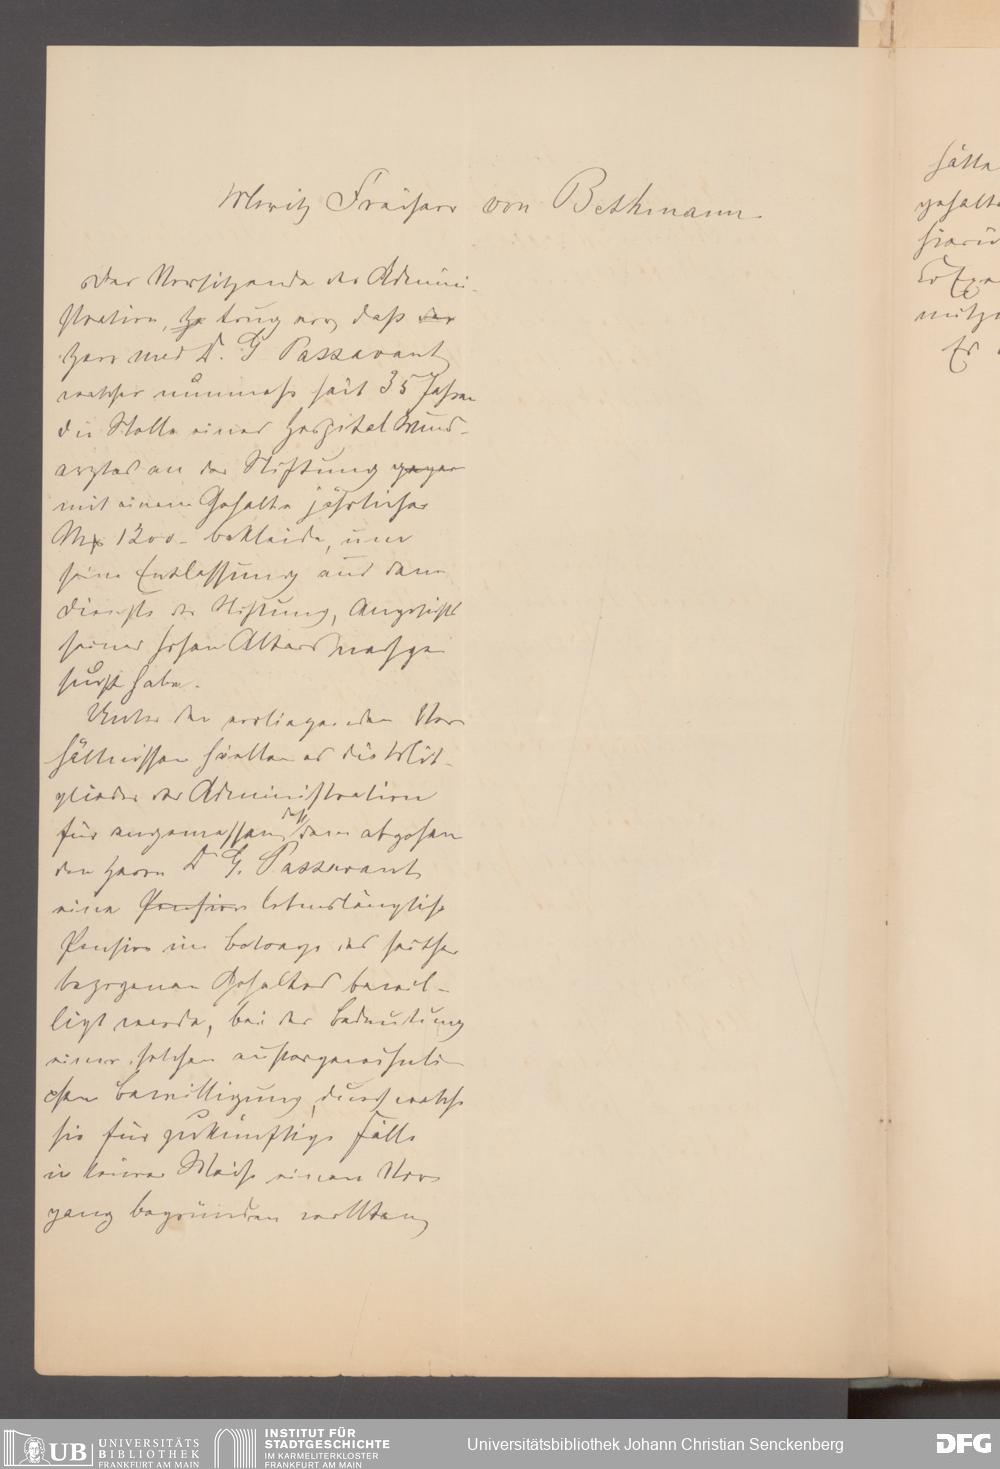 Moritz Freiherr von Bethmann
Der Vorsitzende der Admini-
stration, he trug vor, daß der
Herr med Dr. G Passavant,
welcher nunmehr seit 35 Jahren
die Stelle eines Hospital Wund-
arztes an der Stiftung gegen
mit einem Gehalte jährlicher
Mk 1200- bekleide, um
seine Entlassung aus dem
Dienste der Stiftung, Angesichts
seines hohen Alters nachge
sucht habe.
Unter den vorliegenden Ver
hältnissen hielten es die Mit-
glieder der Administration
für angemessen, daß dem abgehen
den Herrn Dr G. Passavant,
eine Pension lebenslängliche
Pension im Betrage des seither
bezogenen Gehaltes bewil-
ligt werde, bei der Bedeutung
einer solchen außergewöhnli
chen Bewilligung, durch welche
sie für zukünftige Fälle
in keiner Weise einen Vor
gang begründen wollten,
hätte
gehalt
hierü
Er
UB UNIVERSITÄTS
BIBLIOTHEK
FRANKFURT AM MAIN
INSTITUT FÜR
STADTGESCHICHTE
IM KARMELITERKLOSTER
FRANKFURT AM MAIN
Universitätsbibliothek Johann Christian Senckenberg
DFG